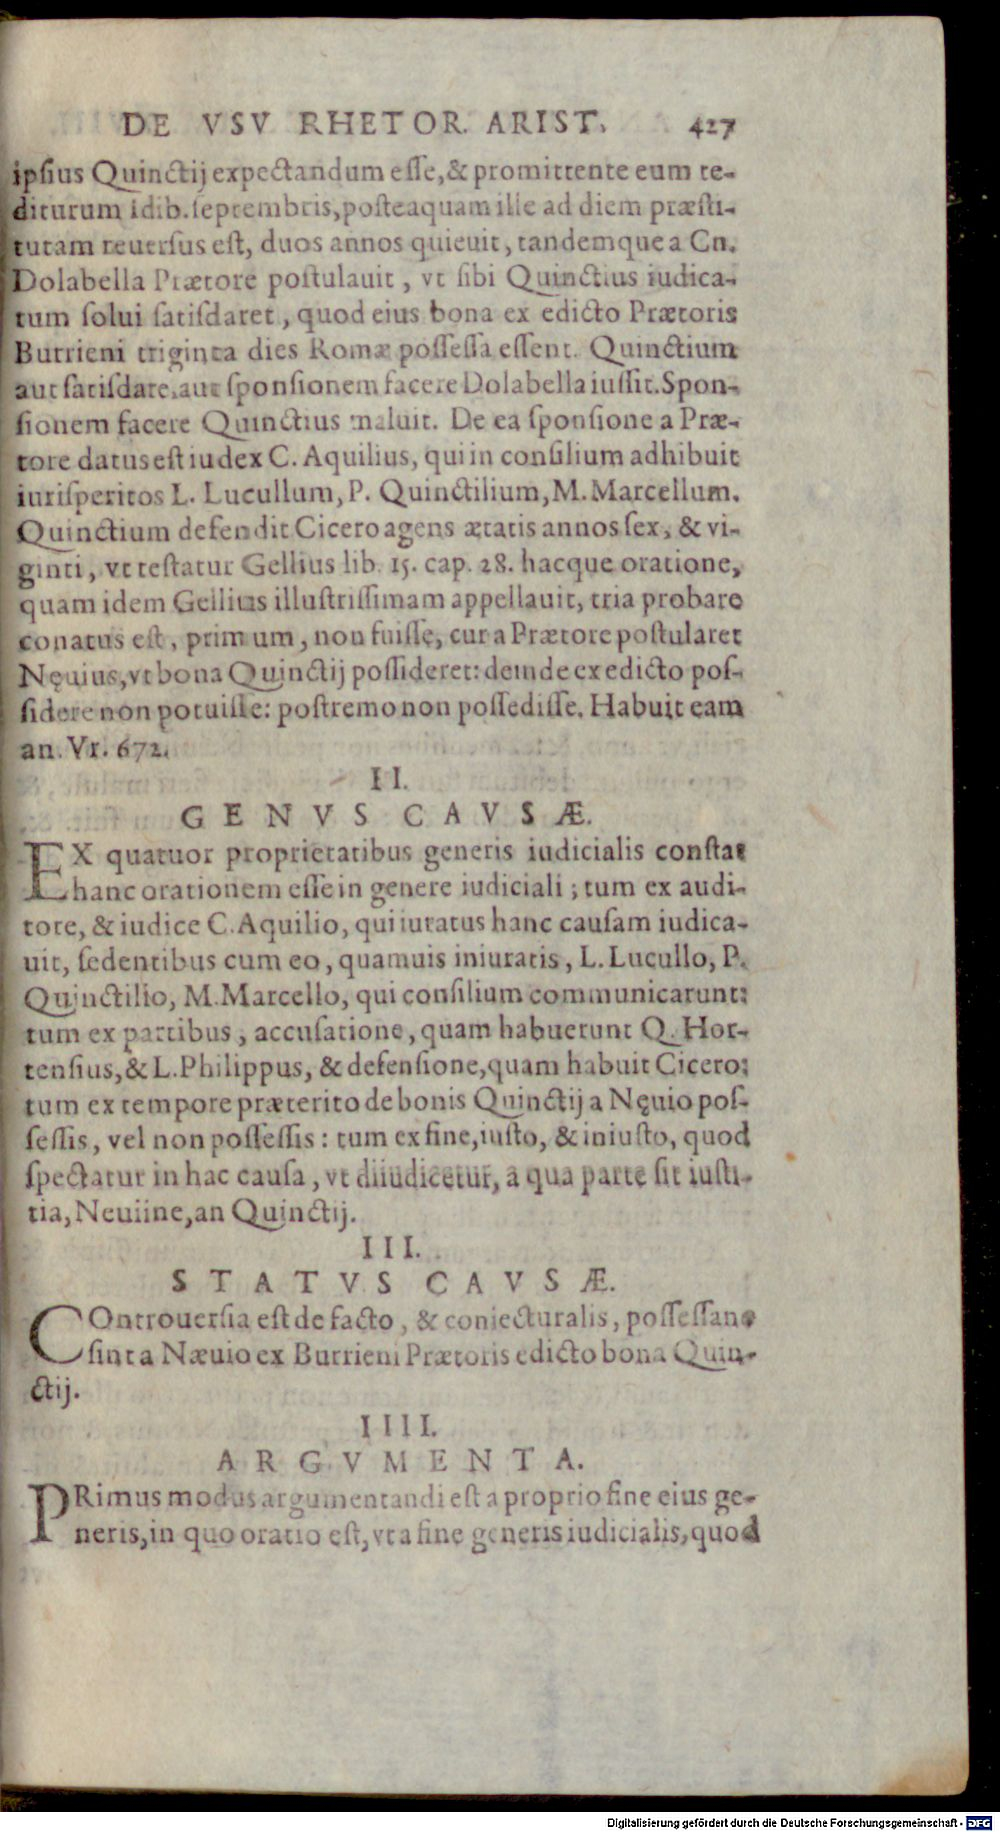 DE VSV RHETOR. ARIST. 427
ipsius Quinctij expectandum esse, & promittente eum re-
diturum idib. septembris, posteaquam ille ad diem præsti-
tutam reuersus est, duos annos quieuit, tandemque a Cn.
Dolabella Prætore postulauit, vt sibi Quinctius iudica-
tum solui satisdaret, quod eius bona ex edicto Prætoris
Burrieni triginta dies Romæ possessa essent. Quinctium
aut satisdare, aut sponsionem facere Dolabella iussit. Spon-
sionem facere Quinctius maluit. De ea sponsione a Præ-
tore datus est iudex C. Aquilius, qui in consilium adhibuit
iurisperitos L. Lucullum, P. Quinctilium, M. Marcellum.
Quinctium defendit Cicero agens ætatis annos sex, & vi-
ginti, vt testatur Gellius lib. 15. cap. 28. hacque oratione,
quam idem Gellius illustrissimam appellauit, tria probare
conatus est, primum, non fuisse, cur a Prætore postularet
Nęuius, vt bona Quinctij possideret: deinde ex edicto pos-
sidere non potuisse: postremo non possedisse. Habuit eam
an. Vr. 672.
II.
GENVS CAVSÆ.
EX quatuor proprietatibus generis iudicialis constat
hanc orationem esse in genere iudiciali; tum ex audi-
tore, & iudice C. Aquilio, qui iuratus hanc causam iudica-
uit, sedentibus cum eo, quamuis iniuratis, L. Lucullo, P.
Quinctilio, M. Marcello, qui consilium communicarunt:
tum ex partibus, accusatione, quam habuerunt Q. Hor-
tensius, & L. Philippus, & defensione, quam habuit Cicero:
tum ex tempore præterito de bonis Quinctij a Nęuio pos-
sessis, vel non possessis: tum ex fine, iusto, & iniusto, quod
spectatur in hac causa, vt diiudicetur, a qua parte sit iusti-
tia, Neuiine, an Quinctij.
III.
STATVS CAVSÆ.
COntrouersia est de facto, & coniecturalis, possessane
sint a Næuio ex Burrieni Prætoris edicto bona Quin-
ctij.
IIII.
ARGVMENTA.
PRimus modus argumentandi est a proprio fine eius ge-
neris, in quo oratio est, vt a fine generis iudicialis, quod
Digitalisierung gefördert durch die Deutsche Forschungsgemeinschaft - DFG